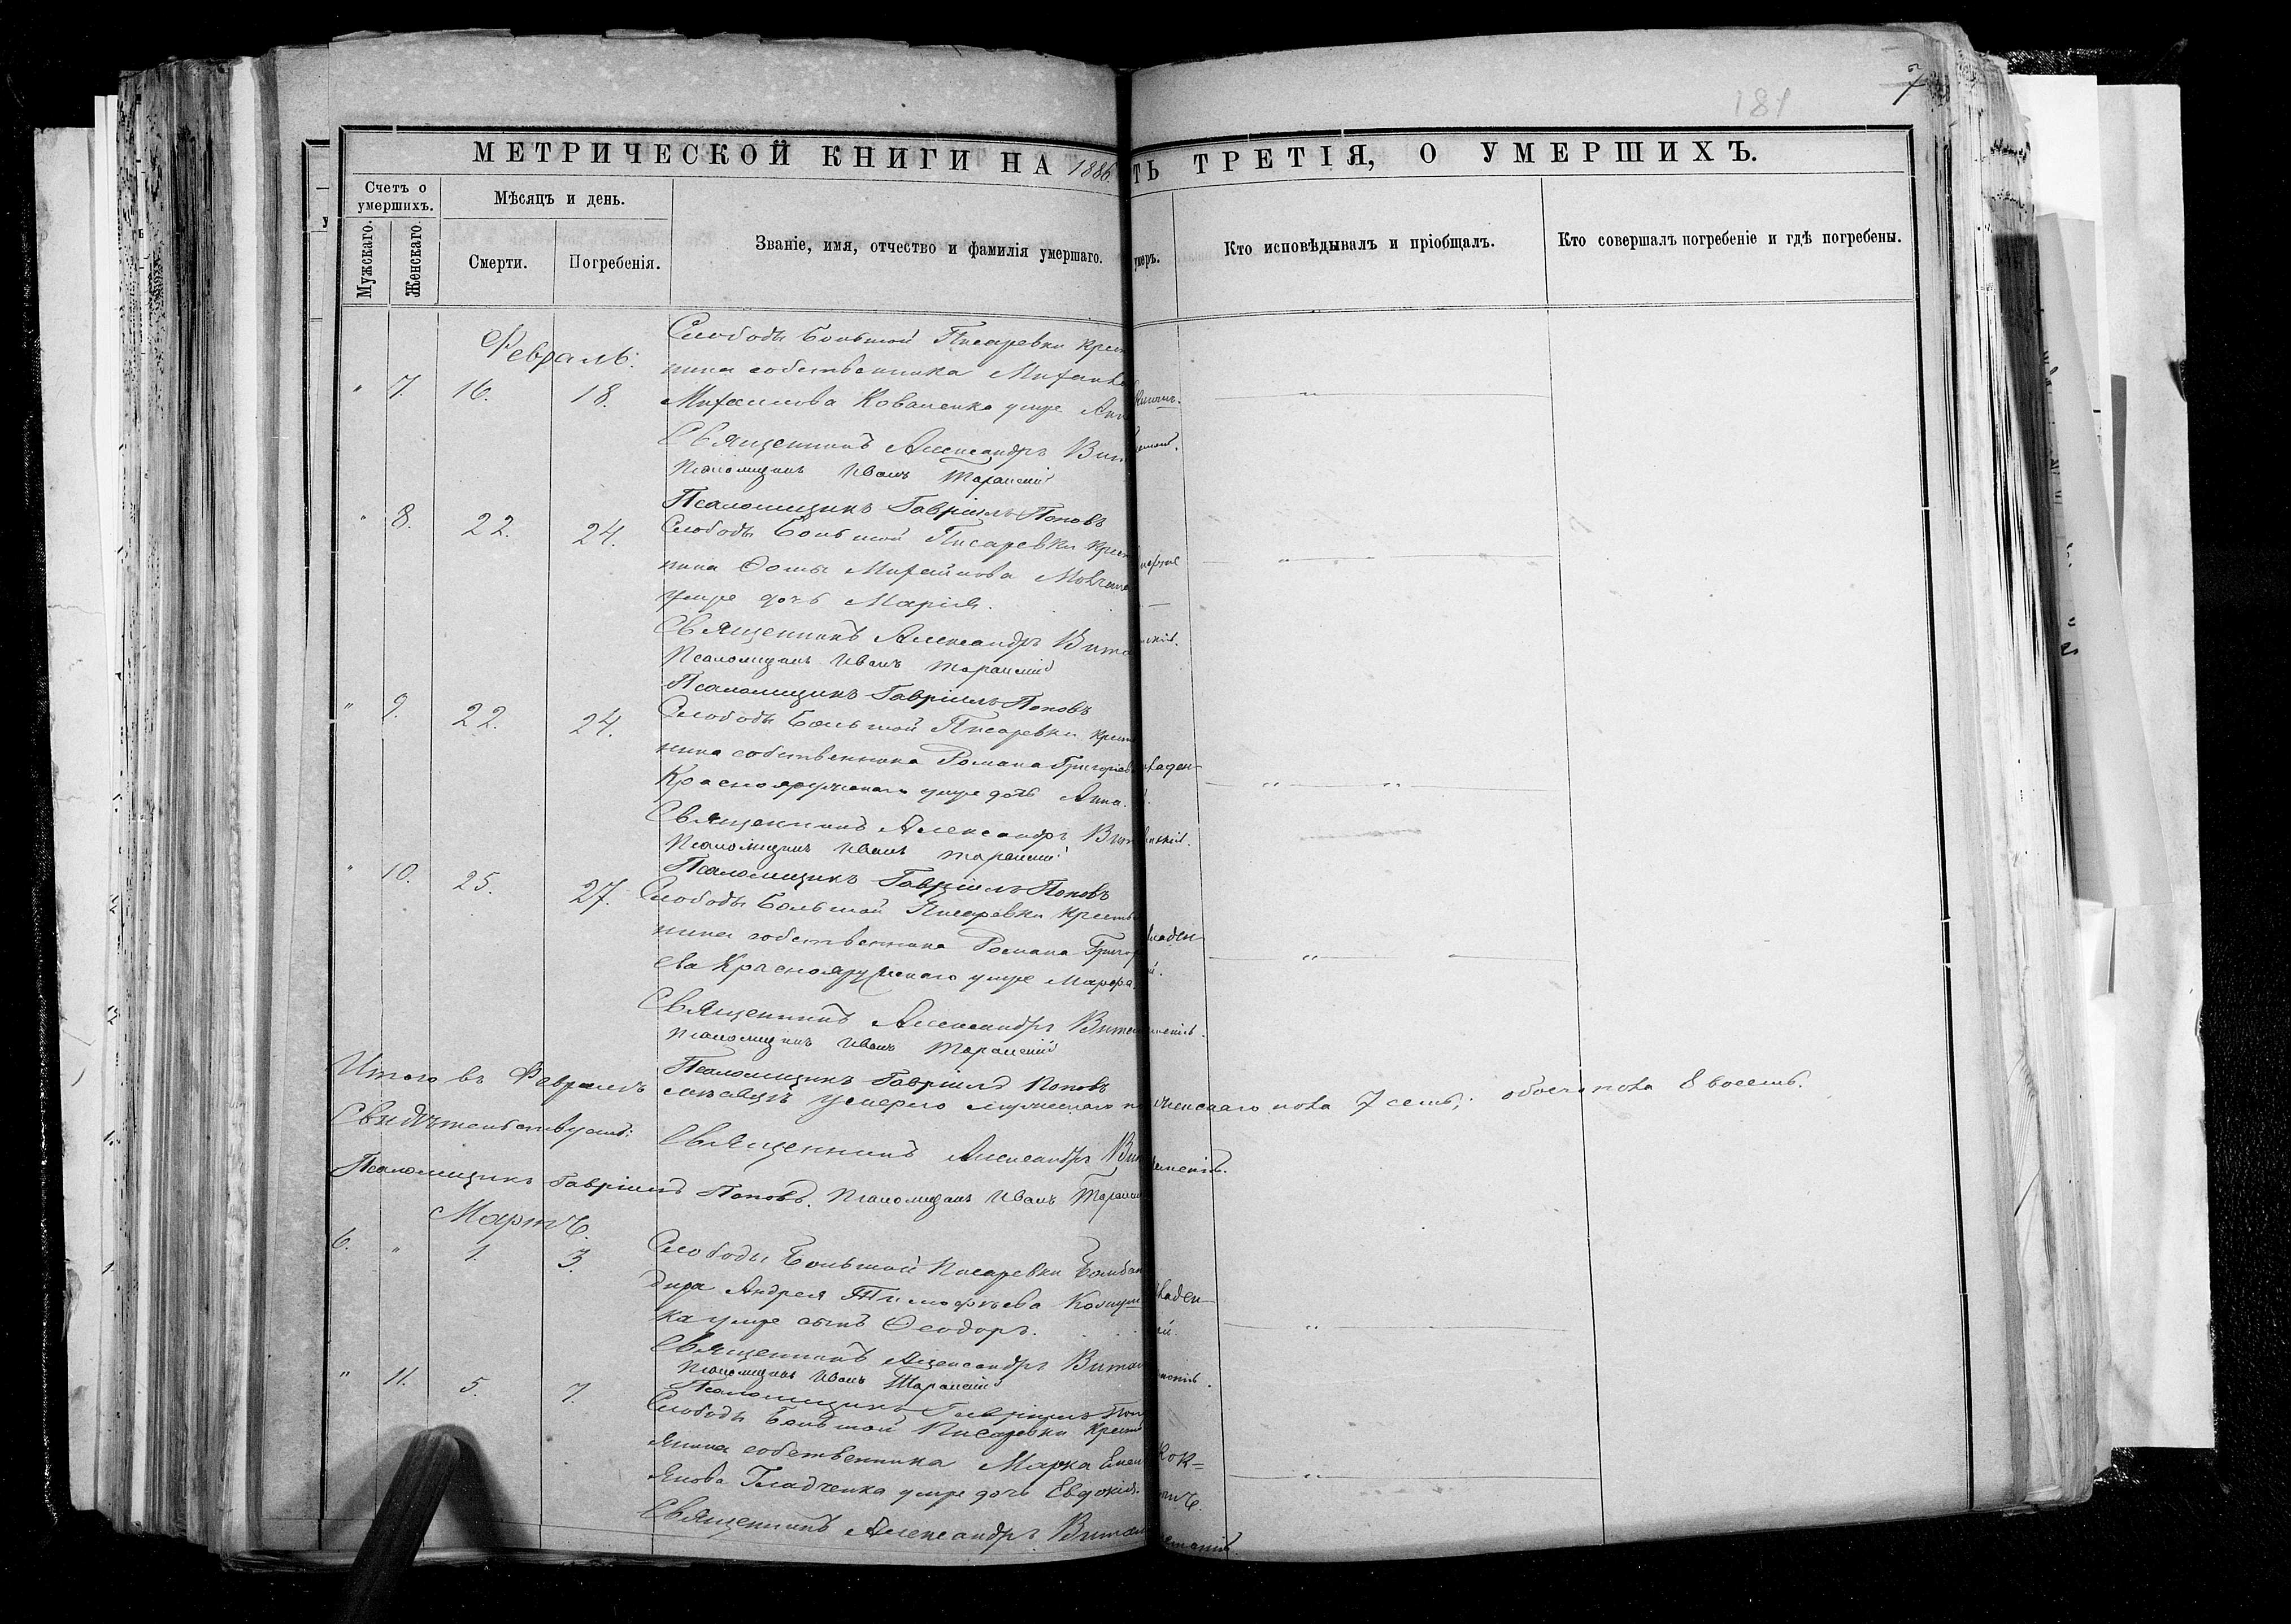 7
181
МЕТРИЧЕСКОЙ КНИГИ НА 1886
ТЬ ТРЕТІЯ, О УМЕРШИХЪ.
Счетъ о умершихъ.
Мужскаго.
Женскаго.
Мѣсяцъ и день.
Смерти.
Погребенія.
Званіе, имя, отчество и фамилія умершаго.
умеръ.
Кто исповѣдывалъ и пріобщалъ.
Кто совершалъ погребеніе и гдѣ погребены.
Февраль:
Слободы Большой Писаревки крест
нина собственника Михаила
" 7. 16. 18. Михаилова Коваленка умре Анн
Священникъ Александръ Вит
Псаломщикъ Иванъ
Псаломщикъ Гавріилъ Поповъ
" 8. 22. 24. Слободы Большой Писаревки крест
нина Ѳомы Михайлова
умре дочь Марія.
Священникъ Александръ Вита
Псаломщикъ Иванъ
Псаломщикъ Гавріилъ Поповъ
" 9. 22. 24. Слободы Большой Писаревки крест
нина собственника Романа Григорьев младен
Краснояружскаго умре дочь Анна.
Священникъ Александръ Вит
Псаломщикъ Иванъ
Псаломщикъ Гавріилъ Поповъ
" 10. 25. 27. Слободы Большой Писаревки крестья
нина собственника Романа Григор младен
ева Краснояружскаго умре Марфа.
Священникъ Александръ Вита
Псаломщикъ Иванъ
Псаломщикъ Гавріилъ Поповъ
Итого въ Февралѣ мѣсяцѣ умерло мужескаго по женскаго пола 7 семь; обоего пола 8 восемь.
Свидѣтельствуемъ: Священникъ Александръ Вит
Псаломщикъ Гавріилъ Поповъ. Псаломщикъ Иванъ
Мартъ.
6. " 1. 3. Слободы Большой Писаревки Бомбан
дира Андрея Тимофѣева младен
ка умре сынъ Ѳеодоръ. й.
Священникъ Александръ Вита
Псаломщикъ Иванъ
Псаломщикъ Гавріилъ Поп
" 11. 5. 7. Слободы Большой Писаревки крест
янина собственника Марка Емел
янова Гладченка умре дочь Евдокія.
Священникъ Александръ Витан